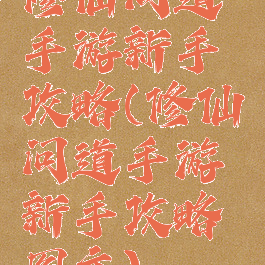 修仙问道
手游新手
攻略(修仙
问道手游
新手攻略